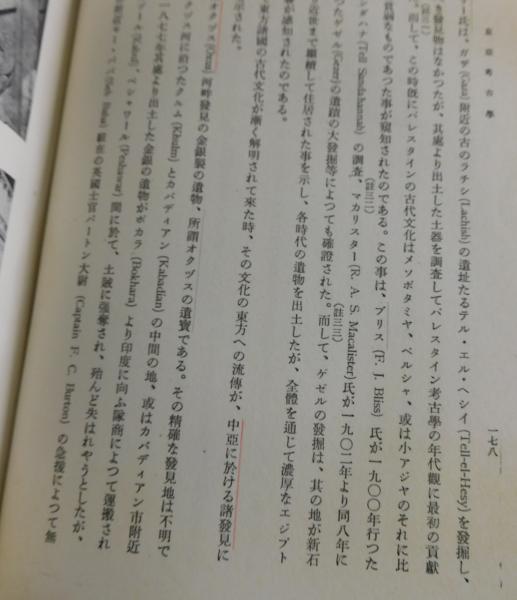 東亞考古學
一七八
氏は、ガザ(Gaza)附近の古のラチシ(Lachish)の遺址たるテル・エル・ヘシイ(Tell-el-Hesy)を發掘し、
發見物はなかつたが、其處より出土した土器を調査してパレスタイン考古學の年代觀に最初の貢獻
(註三一)
而して、この時旣にパレスタインの古代文化はメソポタミヤ、ペルシャ、或は小アジヤのそれに比
貧弱なものであつた事が窺知されたのである。この事は、ブリス(F. J. Bliss)氏が一九〇〇年行つた
(註三二)
(Tell Sandahannah)の調査、マカリスター(R. A. S. Macalister)氏が一九〇二年より同八年に
(註三三)
たゲゼル(Gezer)の遺蹟の大發掘等によつても確證された。而して、ゲゼルの發掘は、其の地が新石
近世まで繼續して住居された事を示し、各時代の遺物を出土したが、全體を通じて濃厚なエジプト
が感知されたのである。
東方諸國の古代文化が漸く解明されて來た時、その文化の東方への流傳が、中亞に於ける諸發見に
示された。
オクヅス(Oxus)河畔發見の金銀製の遺物、所謂オクヅスの遺寶である。その精確な發見地は不明で
クヅス河に沿つたクルム(Khulm)とカバディアン(Kabadian)の中間の地、或はカバディアン市附近
一八七七年其處より出土した金銀の遺物がボカラ(Bokhara)より印度に向ふ隊商によつて運搬され
ール(Kabul)、ペシャワール(Peshawar)間に於て、土賊に強奪され、殆んど失はれやうとしたが、
駐在の英國士官バートン大尉(Captain F. C. Burton)の急援によつて無